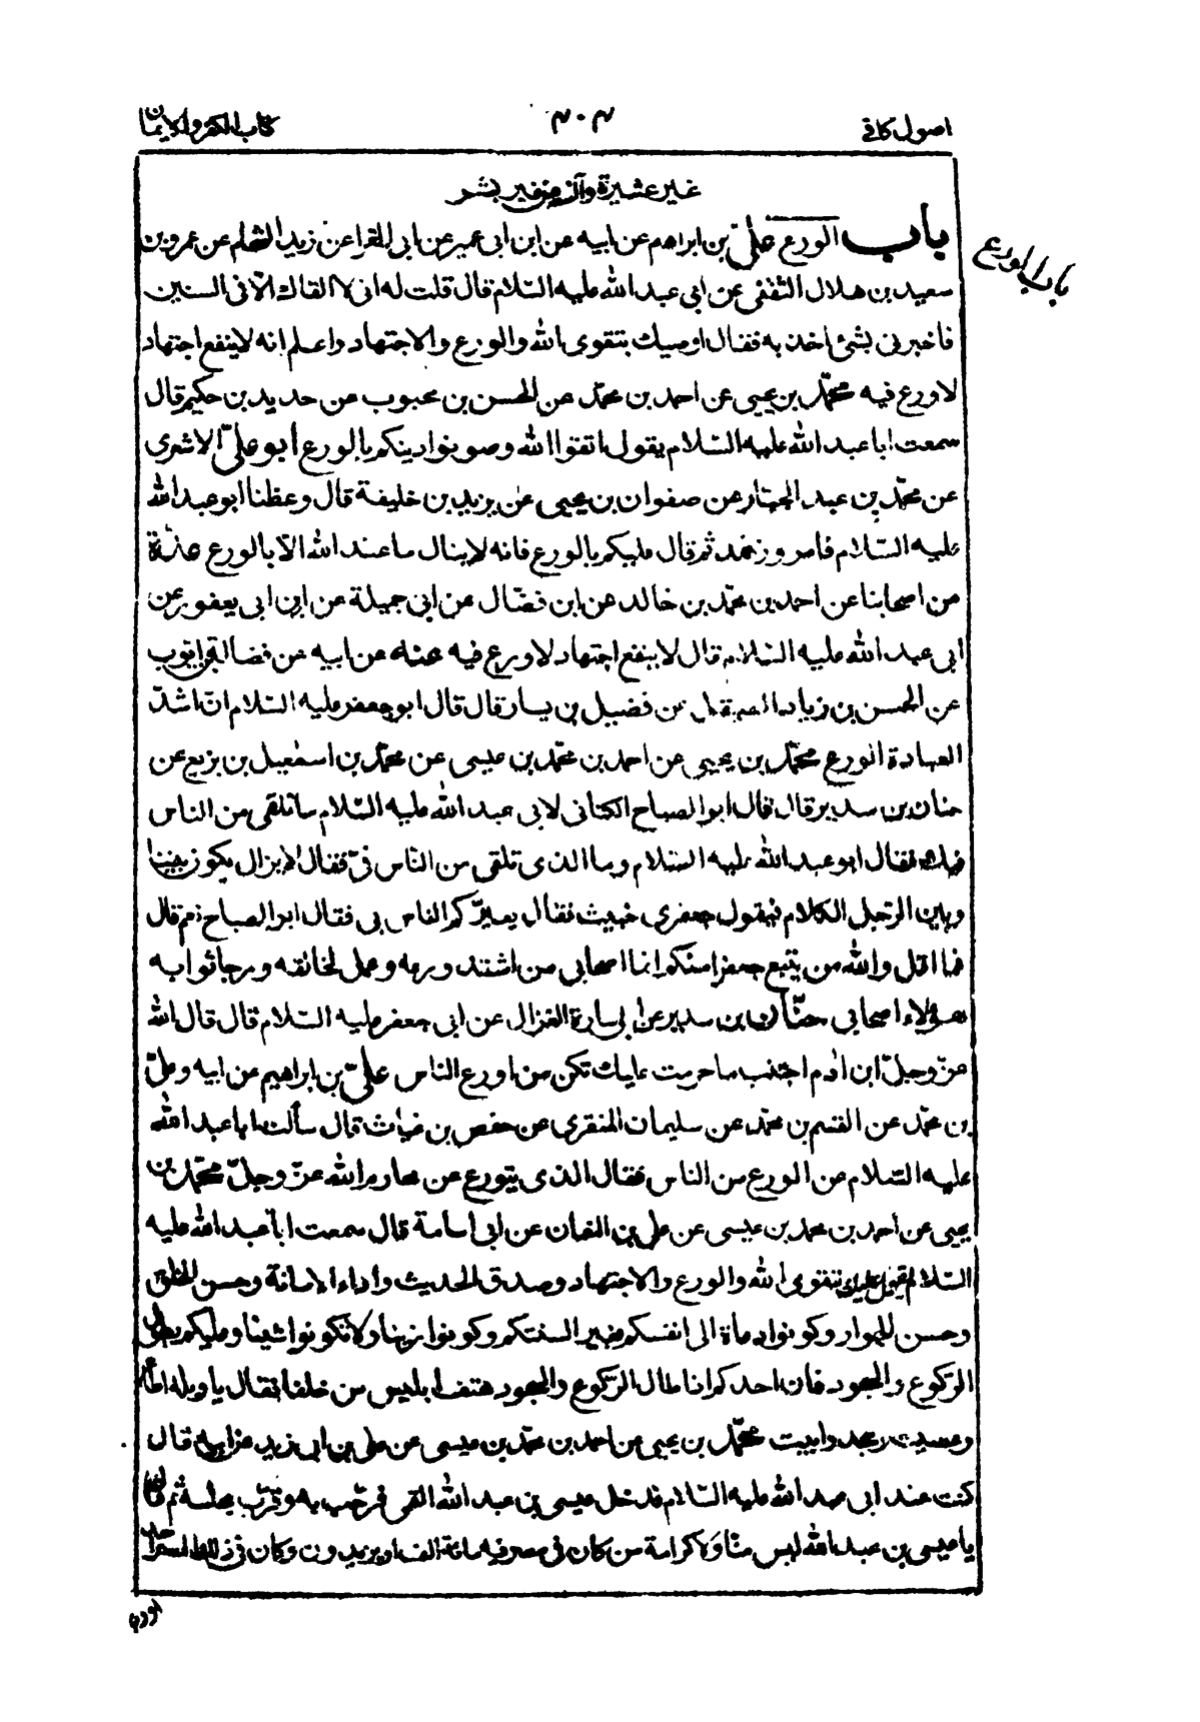 اصول كافى
٣٠٣
كتاب الكفر والايمان
غير عشيرة وآنس من غير بشر
باب الورع
باب الورع على بن ابراهيم عن ابيه عن ابن ابى عمير عن ابى المغرا عن زيد الشحام عن عمرو بن
سعيد بن هلال الثقفى عن ابى عبد الله عليه السلام قال قلت له انى لا القاك الا فى السنين
فاخبرنى بشئ اخذ به فقال اوصيك بتقوى الله والورع والاجتهاد واعلم انه لا ينفع اجتهاد
لا ورع فيه محمد بن يحيى عن احمد بن محمد عن الحسن بن محبوب عن حديد بن حكيم قال
سمعت ابا عبد الله عليه السلام يقول اتقوا الله وصونوا دينكم بالورع ابو على الاشعرى
عن محمد بن عبد الجبار عن صفوان بن يحيى عن يزيد بن خليفة قال وعظنا ابو عبد الله
عليه السلام فامر وزهد ثم قال عليكم بالورع فانه لا ينال ما عند الله الا بالورع عدة
من اصحابنا عن احمد بن محمد بن خالد عن ابن فضال عن ابى جميلة عن ابن ابى يعفور عن
ابى عبد الله عليه السلام قال لا ينفع اجتهاد لا ورع فيه عنه عن ابيه عن فضالة بن ايوب
عن الحسن بن زياد الصيقل عن فضيل بن يسار قال قال ابو جعفر عليه السلام ان اشد
العبادة الورع محمد بن يحيى عن احمد بن محمد بن عيسى عن محمد بن اسمعيل بن بزيع عن
حنان بن سدير قال قال ابو الصباح الكنانى لابى عبد الله عليه السلام ما نلقى من الناس
فيك فقال ابو عبد الله عليه السلام وما الذى تلقى من الناس فى فقال لا يزال يكون بيننا
وبين الرجل الكلام فيقول جعفرى خبيث فقال يعيركم الناس بى فقال ابو الصباح نعم قال
فما اقل والله من يتبع جعفرا منكم انما اصحابى من اشتد ورعه وعمل لخالقه ورجا ثوابه
هؤلاء اصحابى حنان بن سدير عن ابى سارة الغزال عن ابى جعفر عليه السلام قال قال الله
عز وجل ابن ادم اجتنب ما حرمت عليك تكن من اورع الناس على بن ابراهيم عن ابيه وعلى
بن محمد عن القسم بن محمد عن سليمان المنقرى عن حفص بن غياث قال سألت ابا عبد الله
عليه السلام عن الورع من الناس فقال الذى يتورع عن محارم الله عز وجل محمد بن
يحيى عن احمد بن محمد بن عيسى عن على بن النعمان عن ابى اسامة قال سمعت ابا عبد الله عليه
السلام يقول عليك بتقوى الله والورع والاجتهاد وصدق الحديث واداء الامانة وحسن الخلق
وحسن الجوار وكونوا دعاة الى انفسكم بغير السنتكم وكونوا زينا ولا تكونوا شينا وعليكم بطول
الركوع والسجود فان احدكم اذا طال الركوع والسجود هتف ابليس من خلفه فقال يا ويله اطاع
وعصيت وسجد وابيت محمد بن يحيى عن احمد بن محمد بن عيسى عن على بن ابى زيد عن ابيه قال
كنت عند ابى عبد الله عليه السلام فدخل عيسى بن عبد الله القمى فرحب به وقرب مجلسه ثم قال
يا عيسى بن عبد الله ليس منا ولا كرامة من كان فى مصر فيه مائة الف او يزيدون وكان فى ذلك المصر احد
اورع